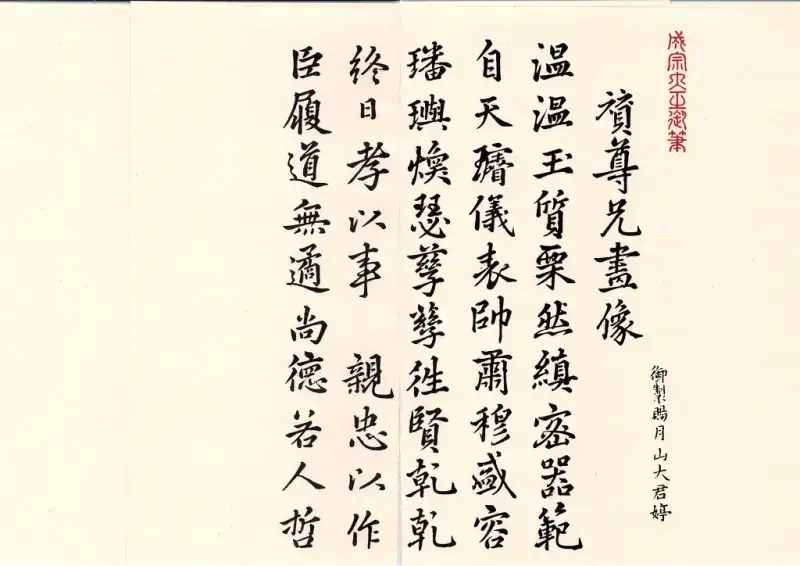 成宗大王御筆
尊兄畫像
御製賜月山大君婷
温温玉質栗然縝密器範
自天璿儀表帥肅穆盛容
璠璵煥瑟孳孳徃賢乾乾
終日孝以事 親忠以作
臣履道無遹尚德若人哲